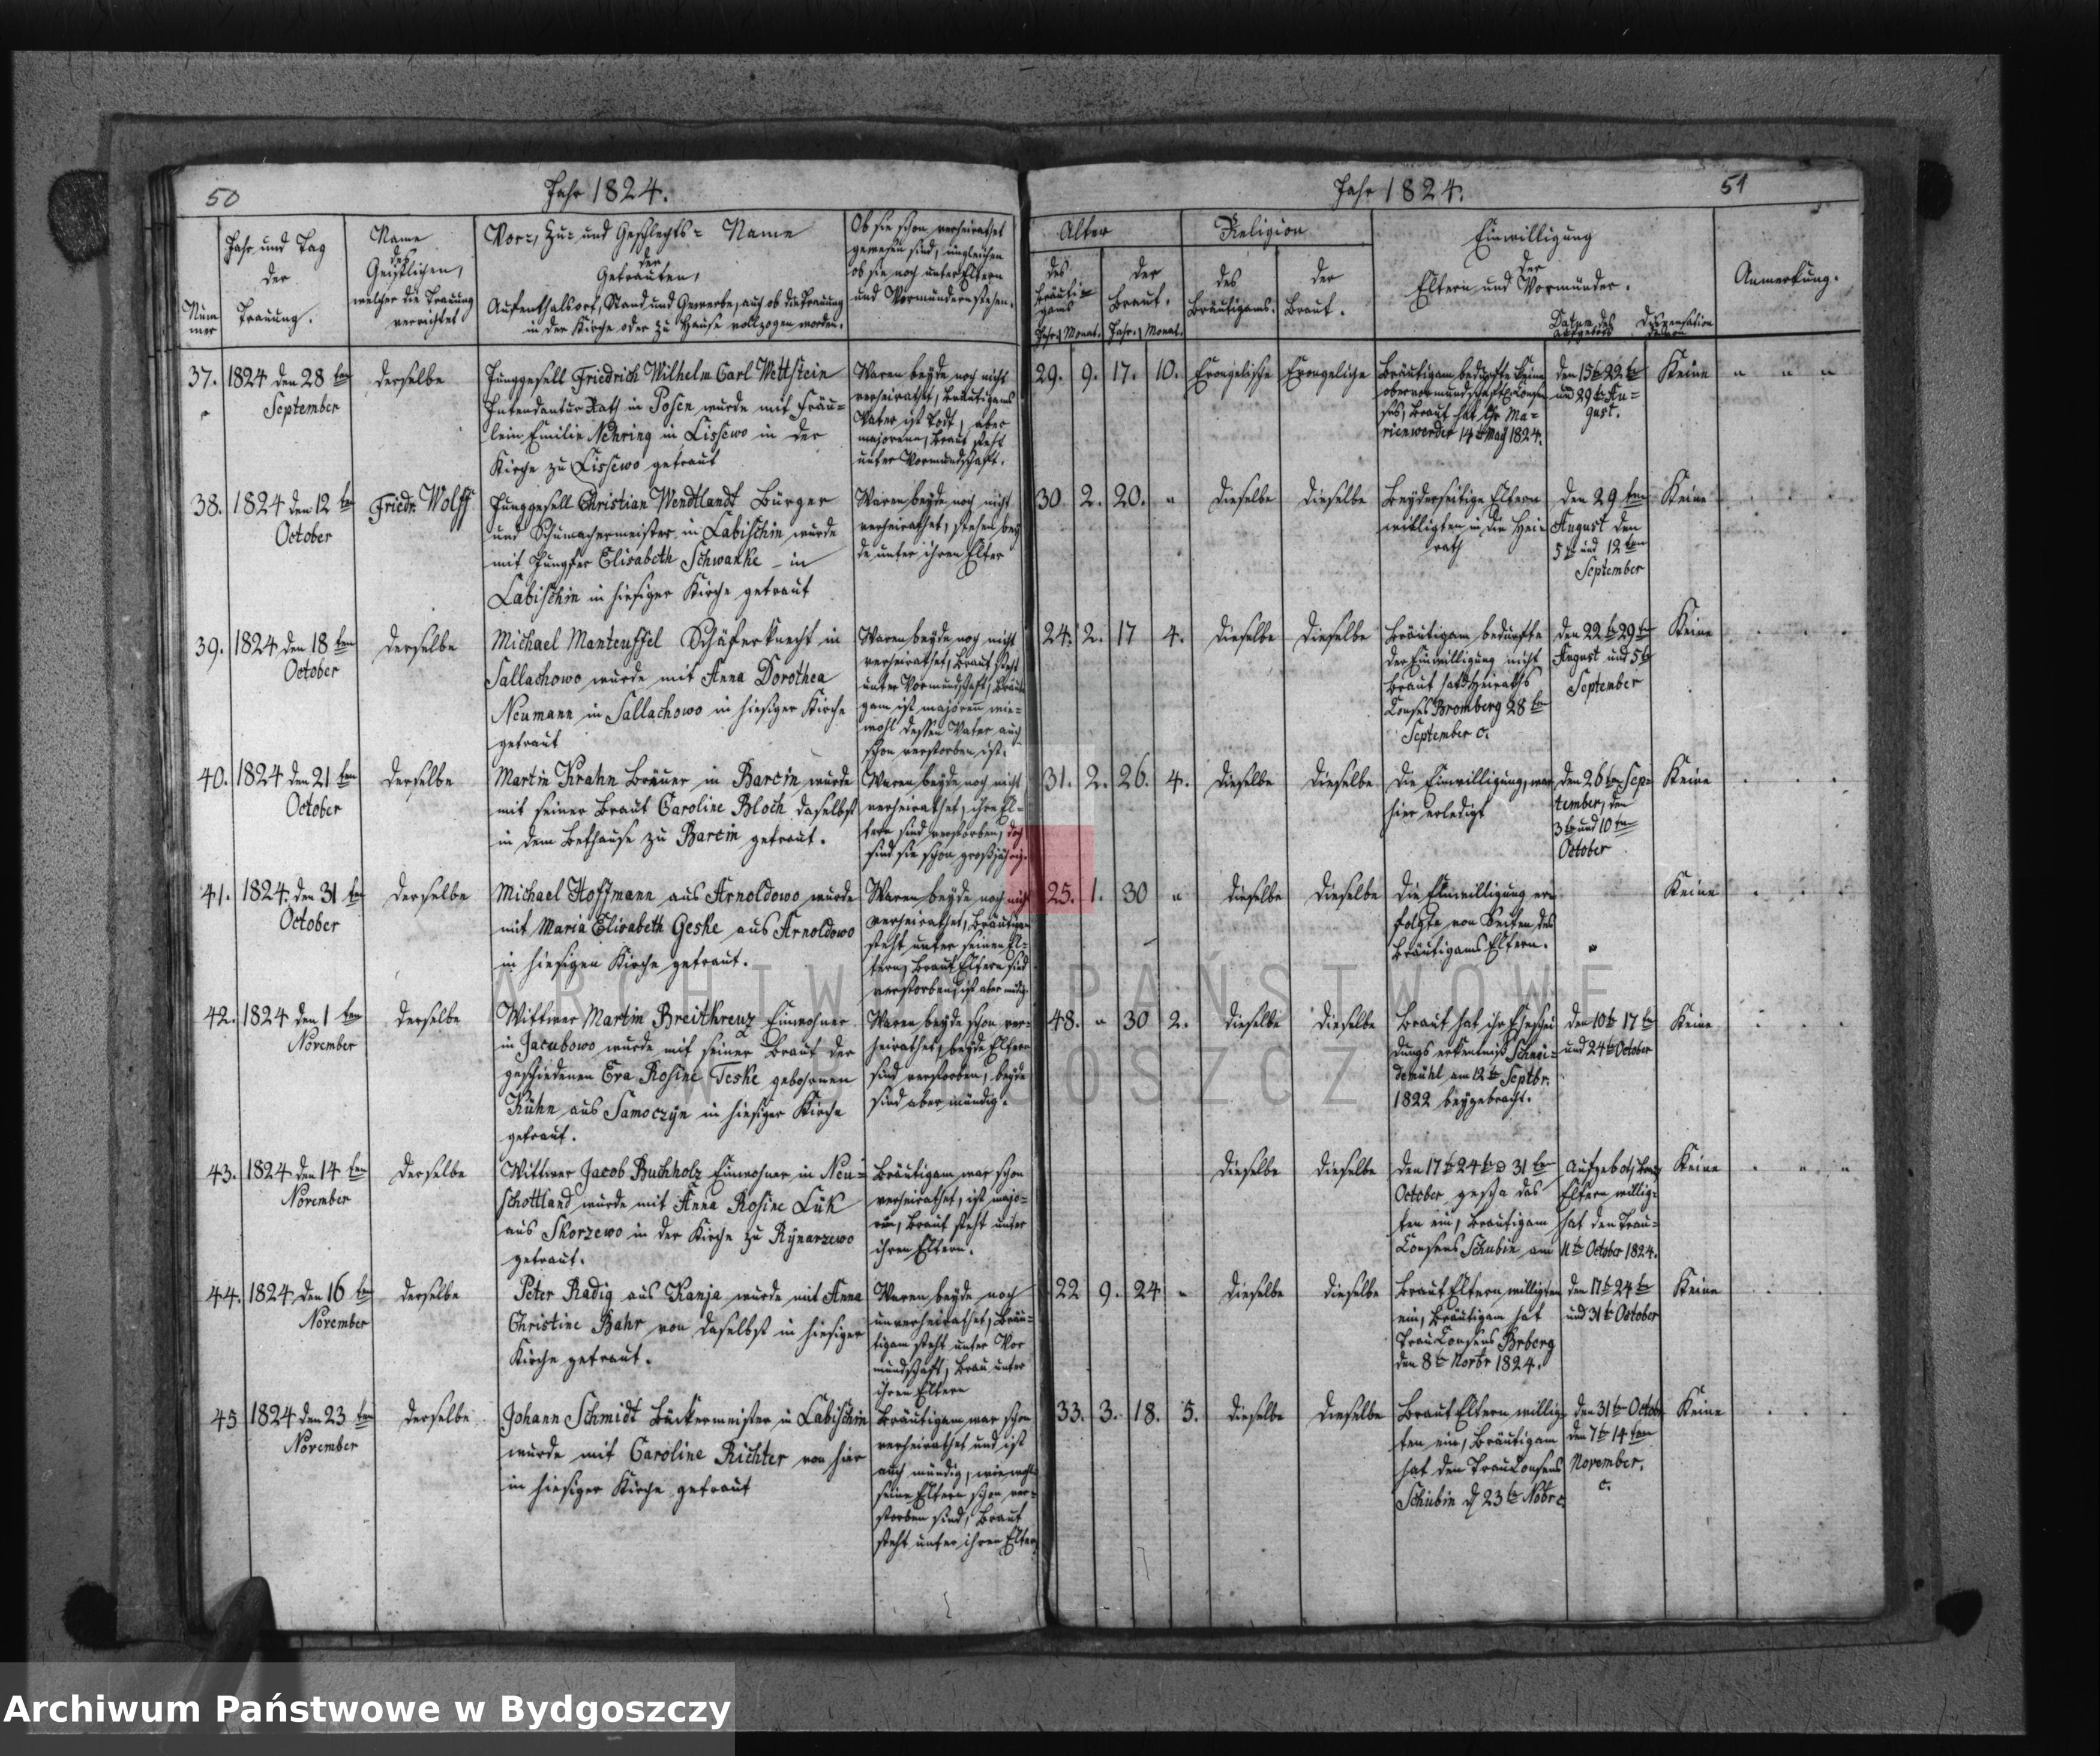 50
Jahr 1824.
Nummer
Jahr und Tag
der
Trauung.
Name
des
Geistlichen,
welcher die Trauung
verrichtet
Vor-, Zu- und Geschlechts-Name
der
Getrauten,
Aufenthalsort, Stand und Gewerbe, auch ob die Trauung
in der Kirche oder zu Hause vollzogen worden.
Ob sie schon verheirathet
gewesen sind, ingleichen
ob sie noch unter Eltern
und Vormündern stehen.
37.
1824 den 28ten
September
derselbe
Junggesell Friedrich Wilhelm Carl Wettstein
Intendantur Rath in Posen wurde mit Fräu-
lein Emilie Nehring in Lissewo in der
Kirche zu Lissewo getraut
Waren beyde noch nicht
verheirathet, Bräutigams
Vater ist todt, aber
majorenn, Braut steht
unter Vormundschaft.
38.
1824 den 12ten
October
Friedr. Wolff
Junggesell Christian Wendtlandt Bürger
und Schumachermeister in Labischin wurde
mit Jungfer Elisabeth Schwanke - in
Labischin in hiesiger Kirche getraut
Waren beyde noch nicht
verheirathet, stehen bey
de unter ihren Elter
39.
1824 den 18ten
October
derselbe
Michael Manteuffel Schäferknecht in
Sallachowo wurde mit Anna Dorothea
Neumann in Sallachowo in hiesiger Kirche
getraut
Waren beyde noch nicht
verheirathet, Braut steht
unter Vormundschaft, Bräuti
gam ist majorenn wie-
wohl dessen Vater auch
schon verstorben ist.
40.
1824 den 21ten
October
derselbe
Martin Krahn Bräuer in Barcin wurde
mit seiner Braut Caroline Bloch daselbst
in dem Bethause zu Barcin getraut.
Waren beyde noch nicht
verheirathet, ihre El-
tern sind verstorben, doch
sind sie schon großjährig.
41.
1824. den 31ten
October
derselbe
Michael Hoffmann aus Arnoldowo wurde
mit Maria Elisabeth Geske aus Arnoldowo
in hiesigen Kirche getraut.
Waren beyde noch nicht
verheirathet, Bräutigam
steht unter seinen El-
tern, Braut Eltern sind
verstorben, ist aber mündig.
42.
1824 den 1ten
November
derselbe
Wittwer Martin Breitkreuz Einwohner
in Jacubowo wurde mit seiner Braut der
geschiedenen Eva Rosine Teske gebohrnen
Kühn aus Samoczyn in hiesiger Kirche
getraut.
Waren beyde schon ver-
heirathet, beyde Eltern
sind verstorben, beyde
sind aber mündig.
43.
1824 den 14ten
November
derselbe
Wittwer Jacob Buchholz Einwohner in Neu-
schottland wurde mit Anna Rosine Lük
aus Skorzewo in der Kirche zu Rynarzewo
getraut.
Bräutigam war schon
verheirathet, ist majo-
ren, Braut steht unter
ihren Eltern.
44.
1824 den 16ten
November
derselbe
Peter Radig aus Kanja wurde mit Anna
Christine Bahr von daselbst in hiesiger
Kirche getraut.
Waren beyde noch
unverheirathet, Bräu-
tigam steht unter Vor
mundschaft, Brau unter
ihren Eltern
45
1824 den 23ten
November
derselbe
Johann Schmidt Bäckermeister in Labischin
wurde mit Caroline Richter von hier
in hiesiger Kirche getraut
Bräutigam war schon
verheirathet und ist
auch mündig, wiewohl
seine Eltern schon ver-
storben sind, Braut
steht unter ihren Eltern
Jahr 1824.
51
Alter
des
Bräuti-
gams
der
Braut.
Jahr. Monat. Jahr. Monat.
Religion
des
Bräutigams.
der
Braut.
Einwilligung
der
Eltern und Vormünder.
Datum des
Aufgebots
Dispensation
Anmerkung.
29. 9. 17. 10. Evangelische Evangeliche
Bräutigam bedurfte keine
obervormundschaftl Consen
ses, Braut hat ihr Ma-
rienwerder 14t May 1824.
den 15t 22t
und 29t Au-
gust.
Keine
30. 2. 20. " dieselbe dieselbe
Beyderseitige Eltern
willigten in die Hei-
rath
den 29ten
August den
5t und 12ten
September
Keine
24. 2. 17 4. dieselbe dieselbe
Bräutigam bedurfte
der Einwilligung nicht
Braut hat Heiraths
Conses Bromberg 28t
September c.
den 22t 29t
August und 5t
September
Keine
31. 2. 26. 4. dieselbe dieselbe
Die Einwilligung, war
hier erledigt
den 26t Sep-
tember, den
3t und 10ten
October
Keine
25. 1. 30 " dieselbe dieselbe
Die Einwilligung er-
folgte von Seiten des
Bräutigams Eltern.
"
Keine
48. " 30 2. dieselbe dieselbe
Braut hat ihr Ehschei
dungs erkentniß Schnei-
demühl am 12t Septbr.
1822 beygebracht.
den 10t 17t
und 24t October
Keine
dieselbe dieselbe
den 17t 24t 31t
October gescha das
ten ein, Bräutigam
Consens Schubin am
Aufgebot, Braut
Eltern willig-
hat den Trau-
11t October 1824.
Keine
22 9. 24 " dieselbe dieselbe
Braut Eltern willigten
ein, Bräutigam hat
Trau Consens Brberg
den 8t Novbr 1824.
den 17t 24t
und 31t October
Keine
33. 3. 18. 5. dieselbe dieselbe
Braut Eltern willig-
ten ein, Bräutigam
hat den Trau Consens
Schubin d 23t Nobr c
den 31t Octob
den 7t 14ten
November.
c.
Keine
ARCHIWUM PAŃSTWOWE
W BYDGOSZCZY
Archiwum Państwowe w Bydgoszczy